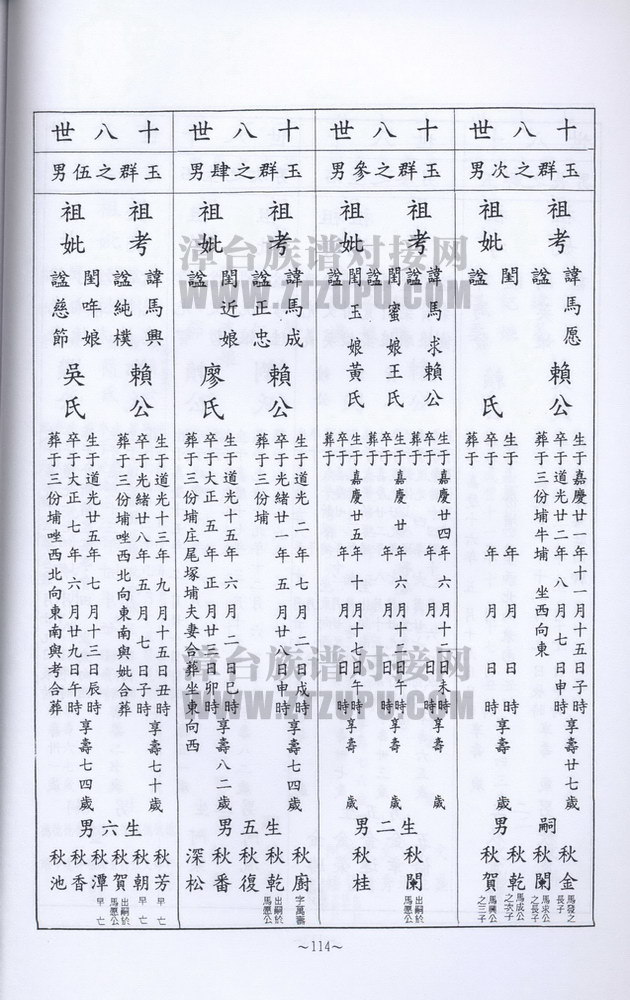 十八世
玉群之次男
祖考
諱馬愿
諡
賴公
生于嘉慶廿一年十一月十五日子時
卒于道光廿二年八月七日申時享壽廿七歲
葬于三份埔牛埔 坐西向東
祖妣
閨
諡
氏
生于 年 月 日 時
卒于 年 月 日 時
葬于
嗣男
秋金 馬發之長子
秋闌 馬求公之長子
秋乾 馬成公之次子
秋賀 馬興公之三子
十八世
玉群之參男
祖考
諱馬求賴公
諡
生于嘉慶廿四年六月十日未時
卒于 年 月 日 時享壽 歲
葬于
祖妣
閨蜜娘王氏
諡
生于嘉慶廿年六月十二日午時
卒于 年 月 日 時享壽 歲
葬于
閨玉娘黃氏
諡
生于嘉慶廿五年十月十七日午時
卒于 年 月 日 時享壽 歲
葬于
生二男
秋闌 出嗣於馬愿公
秋桂
十八世
玉群之肆男
祖考
諱馬成
諡正忠
賴公
生于道光二年七月二日戌時
卒于光緒廿一年五月廿八日申時享壽七四歲
葬于三份埔
祖妣
閨近娘
諡
廖氏
生于道光十五年六月二日巳時
卒于大正五年正月廿三日卯時享壽八二歲
葬于三份埔庄尾塚埔夫妻合葬坐東向西
生五男
秋廚 字萬蓄
秋乾 出嗣於馬愿公
秋復
秋番
深松
十八世
玉群之伍男
祖考
諱馬興
諡純樸
賴公
生于道光十三年九月十五日丑時
卒于光緒廿八年五月七日子時享壽七十歲
葬于三份埔唑西北向東南與妣合葬
祖妣
閨哖娘
諡慈節
吳氏
生于道光廿五年七月十三日辰時
卒于大正七年六月廿九日午時享壽七四歲
葬于三份埔唑西北向東南與考合葬
生六男
秋芳 早亡
秋朝 早亡
秋賀 出嗣於馬愿公
秋潭 早亡
秋香
秋池
~114~
漳台族谱对接网
WWW.ZTZUPU.COM
漳台族谱对接网
WWW.ZTZUPU.COM